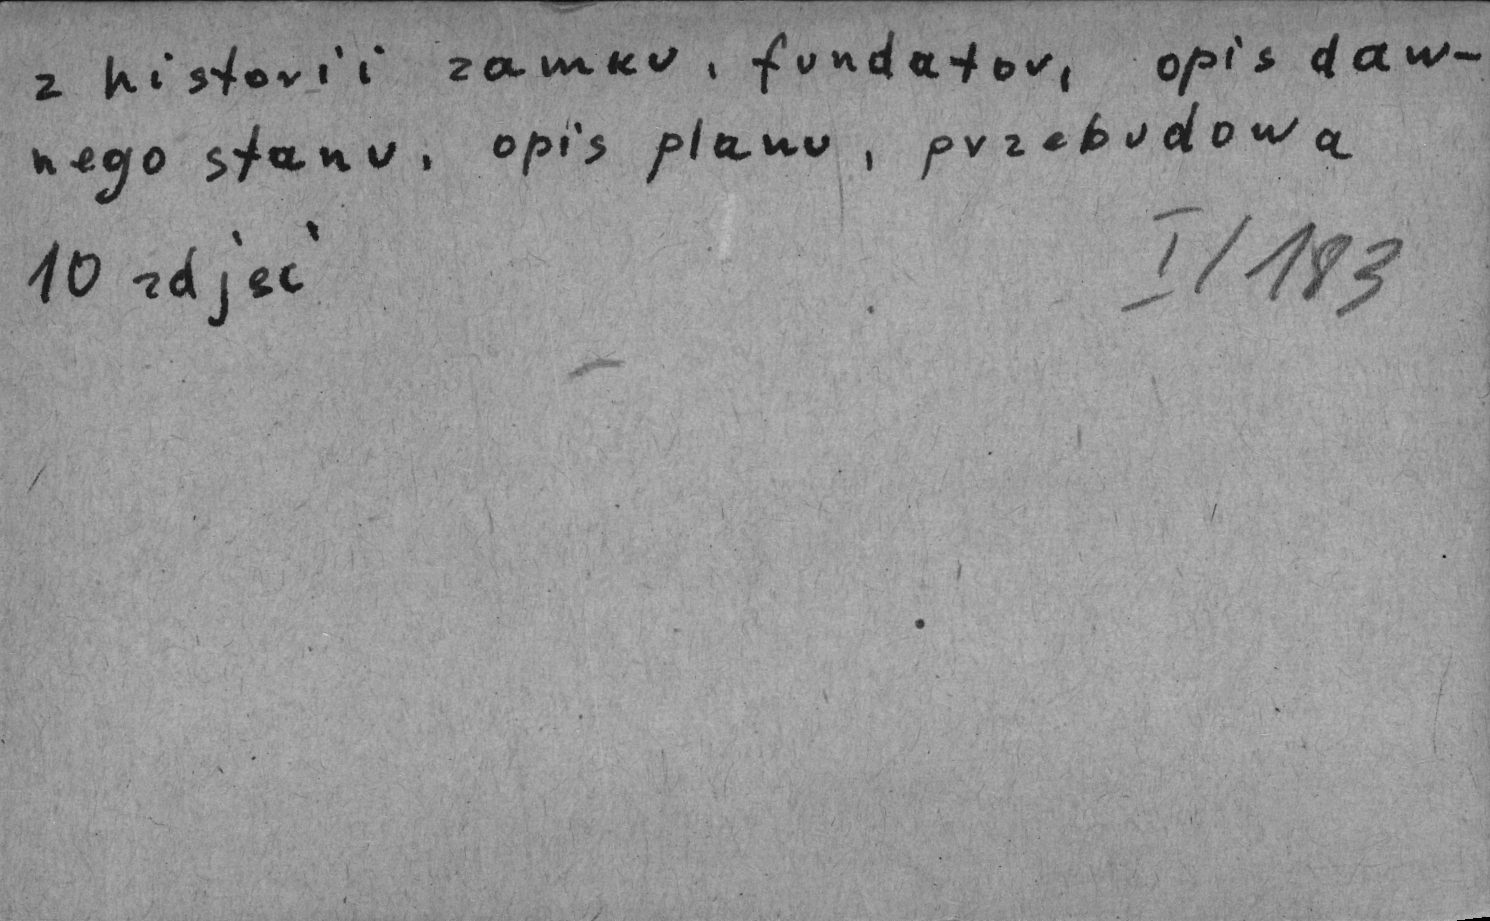 z historii zamku, fundator, opis daw-
nego stanu, opis planu, przebudowa
10 zdjęć
I/183